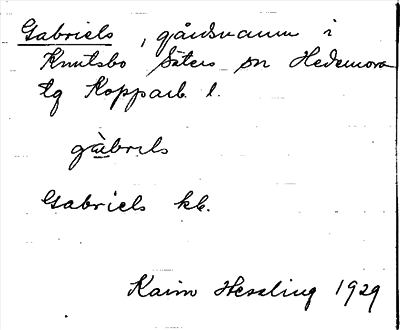 Gabriels, gårdsnamn i
Knutsbo Säters sn Hedemora
tg Kopparb. l.
gàbrəls
Gabriels kb.
Karin Hessling 1929